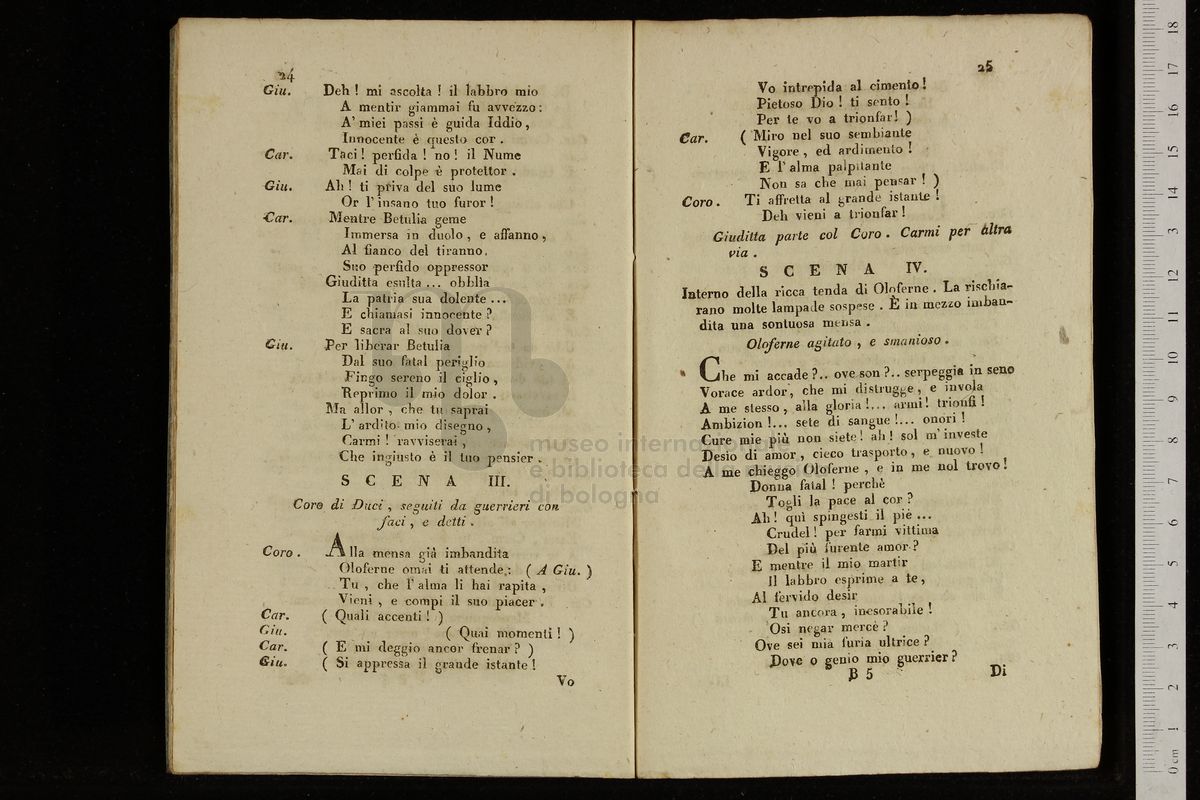 24
Giu. Deh ! mi ascolta ! il labbro mio
A mentir giammai fu avvezzo :
A' miei passi è guida Iddio ,
Innocente è questo cor .
Car. Taci ! perfida ! no ! il Nume
Mai di colpe è protettor .
Giu. Ah ! ti priva del suo lume
Or l' insano tuo furor !
Car. Mentre Betulia geme
Immersa in duolo , e affanno ,
Al fianco del tiranno ,
Suo perfido oppressor
Giuditta esulta ... obblìa
La patria sua dolente ...
E chiamasi innocente ?
E sacra al suo dover ?
Giu. Per liberar Betulia
Dal suo fatal periglio
Fingo sereno il ciglio ,
Reprimo il mio dolor .
Ma allor , che tu saprai
L' ardito mio disegno ,
Carmi ! ravviserai ,
Che ingiusto è il tuo pensier .
SCENA III.
Coro di Duci , seguiti da guerrieri con
faci , e detti .
Coro . Alla mensa già imbandita
Oloferne omai ti attende : ( A Giu. )
Tu , che l' alma li hai rapita ,
Vieni , e compi il suo piacer .
Car. ( Quali accenti ! )
Giu. ( Quai momenti ! )
Car. ( E mi deggio ancor frenar ? )
Giu. ( Si appressa il grande istante !
Vo
25
Vo intrepida al cimento !
Pietoso Dio ! ti sento !
Per te vo a trionfar ! )
Car. ( Miro nel suo sembiante
Vigore , ed ardimento !
E l' alma palpitante
Non sa che mai pensar ! )
Coro . Ti affretta al grande istante !
Deh vieni a trionfar !
Giuditta parte col Coro . Carmi per altra
via .
SCENA IV.
Interno della ricca tenda di Oloferne . La rischia-
rano molte lampade sospese . È in mezzo imban-
dita una sontuosa mensa .
Oloferne agitato , e smanioso .
Che mi accade ?.. ove son ?.. serpeggia in seno
Vorace ardor , che mi distrugge , e invola
A me stesso , alla gloria !... armi ! trionfi !
Ambizion !... sete di sangue !... onori !
Cure mie più non siete ! ah ! sol m' investe
Desio di amor , cieco trasporto , e nuovo !
A me chieggo Oloferne , e in me nol trovo !
Donna fatal ! perchè
Togli la pace al cor ?
Ah ! quì spingesti il piè ...
Crudel ! per farmi vittima
Del più furente amor ?
E mentre il mio martir
Il labbro esprime a te ,
Al fervido desir
Tu ancora , inesorabile !
Osi negar mercè ?
Ove sei mia furia ultrice ?
Dove o genio mio guerrier ?
B 5 Di
museo internazionale
e biblioteca della
di bologna